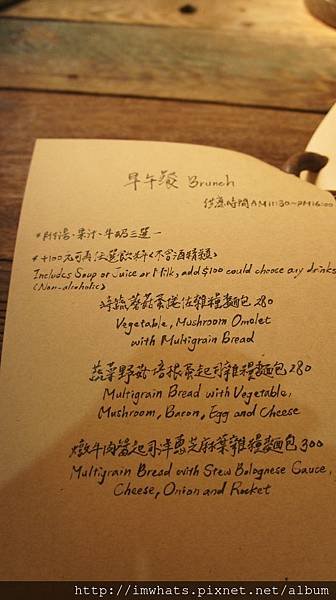 早午餐 Brunch
供應時間 AM11:30~PM16:00
*附湯、果汁、牛奶三選一
*+100元可再任選飲料<不含酒精類>
Includes Soup or Juice or Milk, add $100 could choose any drinks
(Non-alcoholic)
時蔬蘑菇蛋捲佐雜糧麵包 280
Vegetable, Mushroom Omelet
with Multigrain Bread
蔬菜野菇培根蛋起司雜糧麵包 280
Multigrain Bread with Vegetable,
Mushroom, Bacon, Egg and Cheese
燉牛肉醬起司洋蔥芝麻葉雜糧麵包 300
Multigrain Bread with Stew Bolognese Sauce,
Cheese, Onion and Rocket
http://imwhats.pixnet.net/album